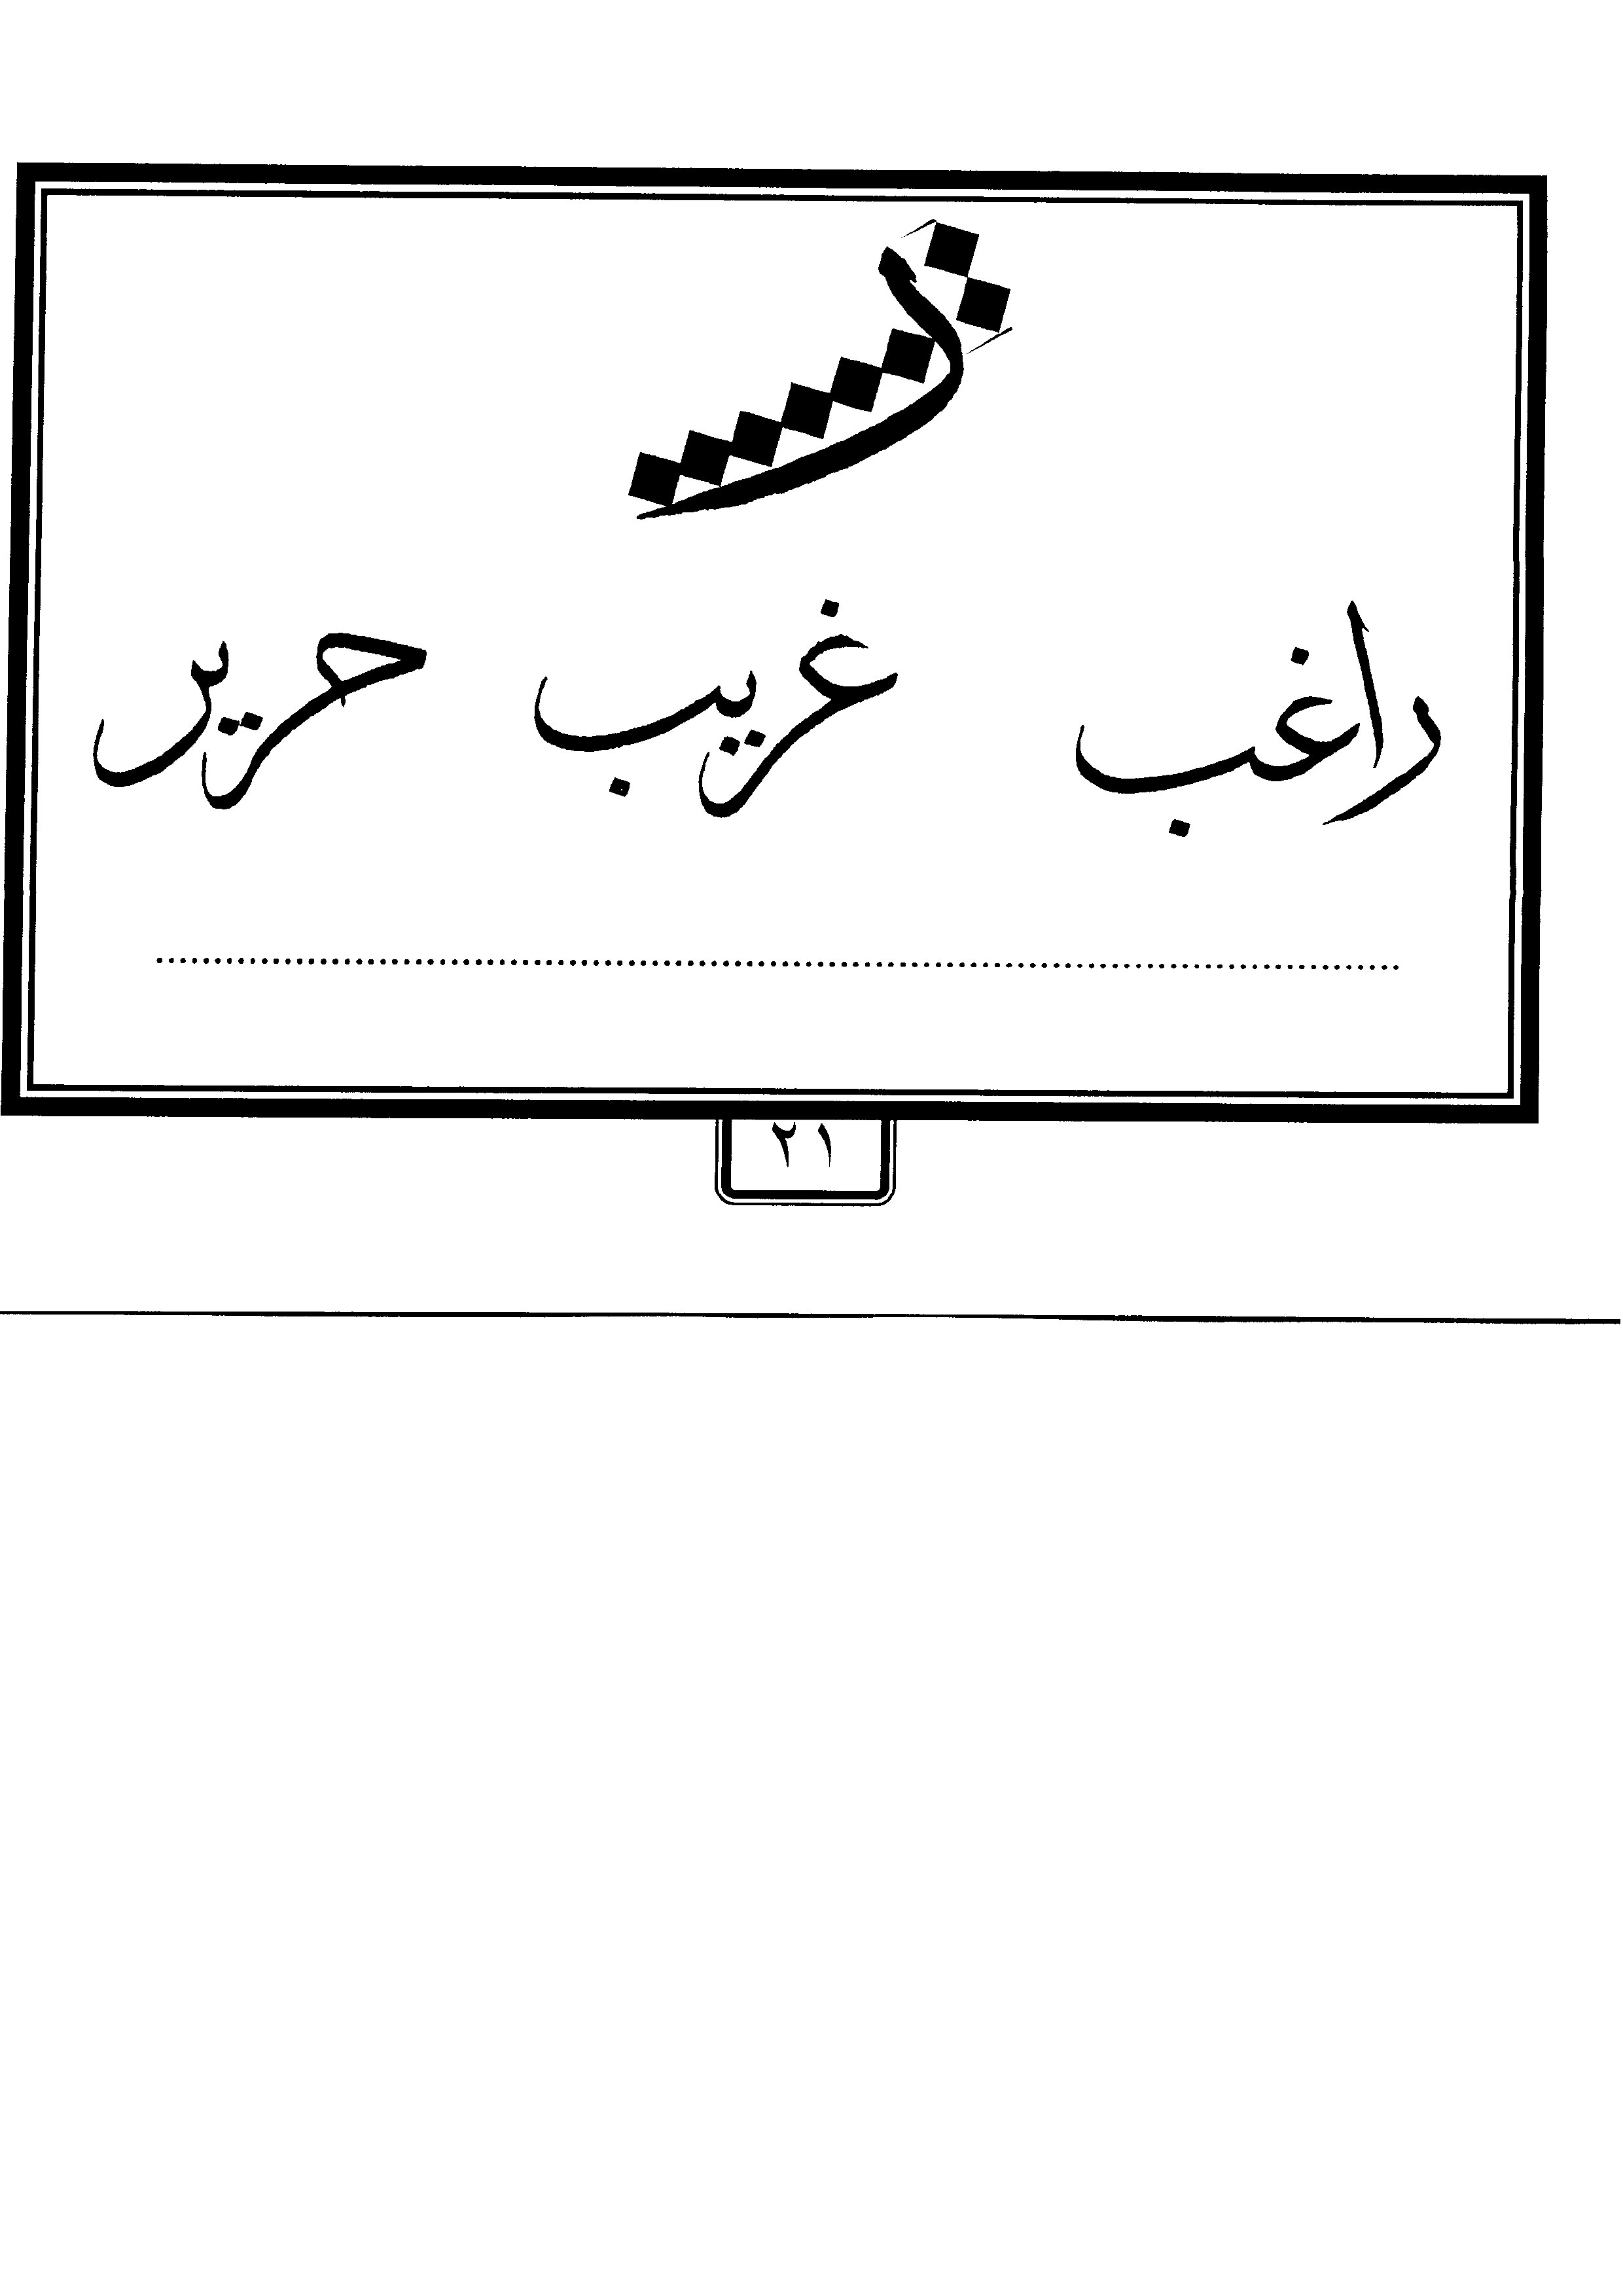 ر
راغب غريب حرير
٢١